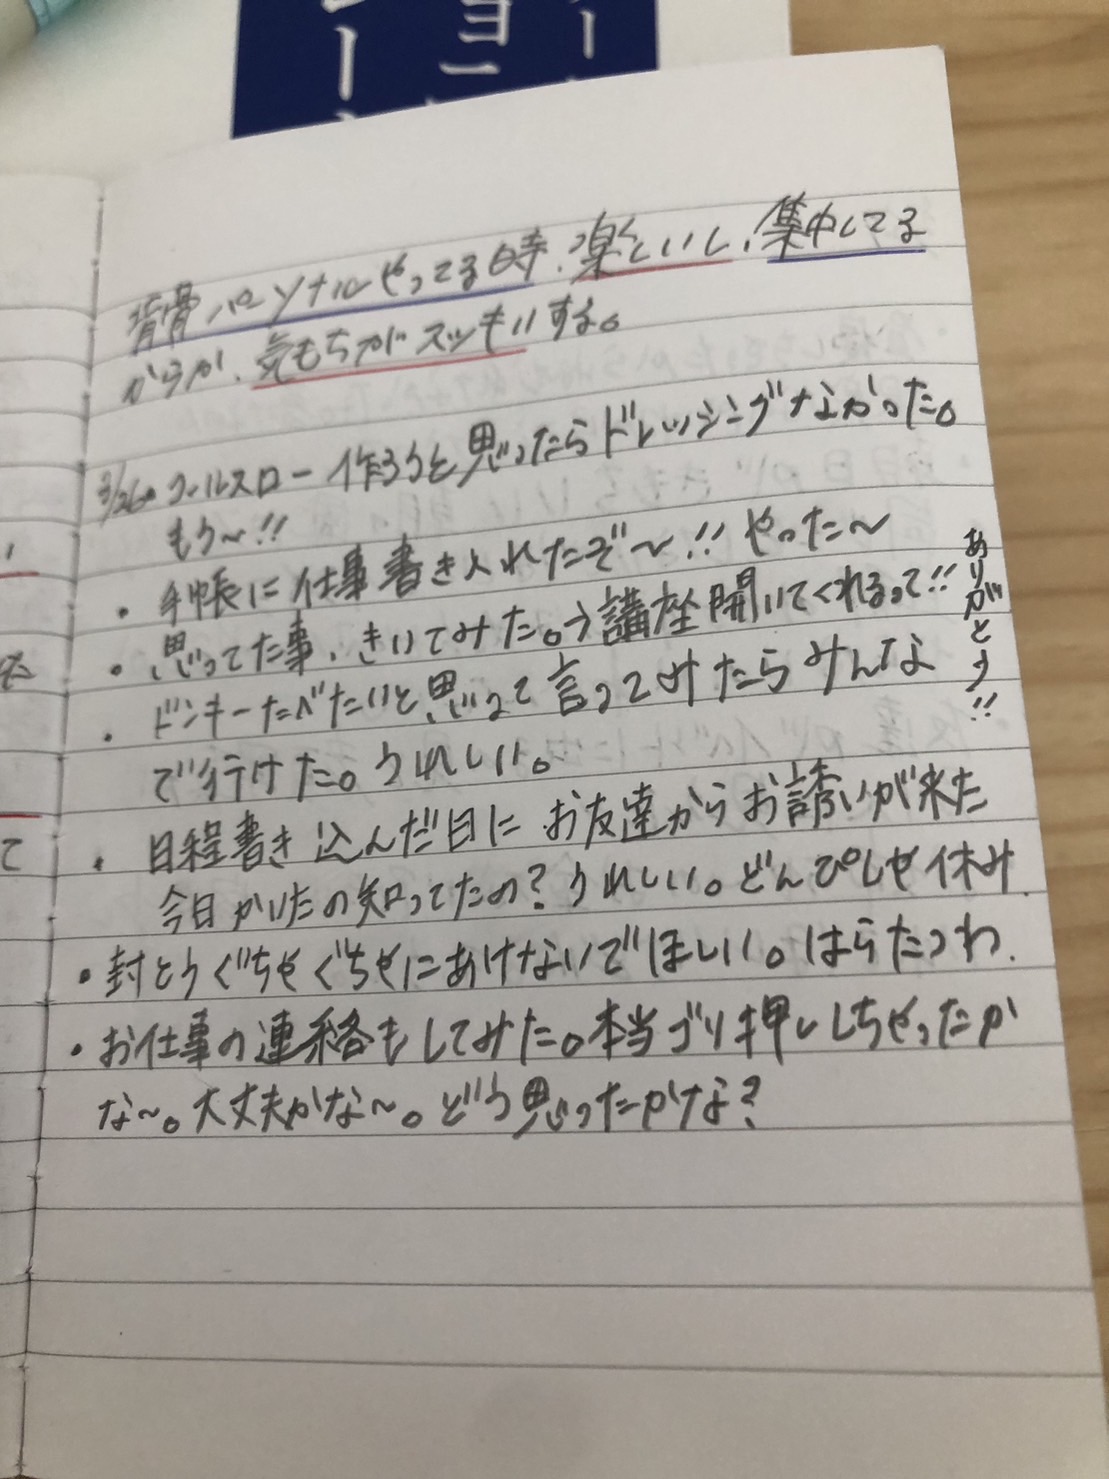 背骨パーソナルやってる時、楽しいし、集中してる
からか、気もちがスッキリする。
3/26・コールスロー作ろうと思ったらドレッシングなかった。
もう〜!!
・手帳に仕事書き入れたぞ〜!! やった〜
・思ってた事、きいてみた。→講座開いてくれるって!!
ありがとう!!
・ドンキーたべたいと思って言ってみたらみんな
で行けた。うれしい。
・日程書き込んだ日にお友達からお誘いが来た
今日かいたの知ってたの?うれしい。どんぴしゃ休み.
・封とうぐちゃぐちゃにあけないでほしい。はらたつわ.
・お仕事の連絡もしてみた。本当ゴリ押ししちゃったか
な〜。大丈夫かな〜。どう思ったかな?